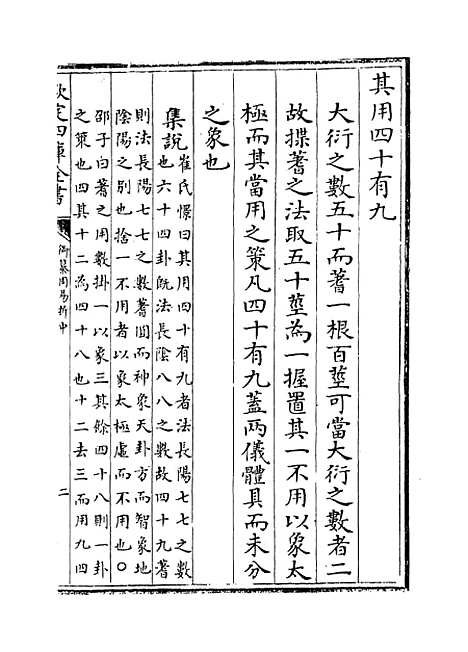 其用四十有九
大衍之數五十而蓍一根百莖可當大衍之數者二
故揲蓍之法取五十莖為一握置其一不用以象太
極而其當用之策凡四十有九蓋兩儀體具而未分
之象也
集說
崔氏憬曰其用四十有九者法長陽七七之數
也六十四卦既法長陰八八之數故四十九蓍
則法長陽七七之數蓍圓而神象天卦方而智象地
陰陽之别也捨一不用者以象太極虛而不用也○
邵子曰蓍之用數掛一以象三其餘四十八則一卦
之策也四其十二為四十八也十二去三而用九四
欽定四庫全書
御纂周易折中
二